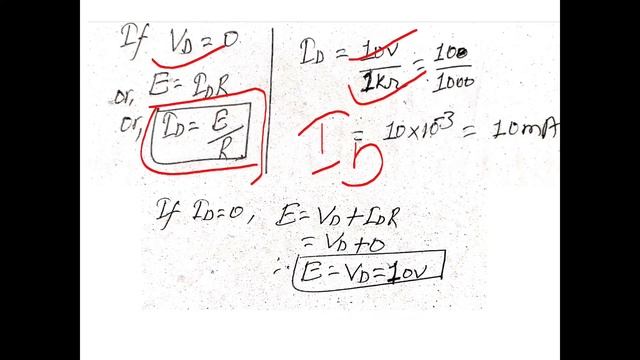 If V_D = 0
or, E = I_D R
or, I_D = E/R
I_D = 10V/1kΩ = 100/1000
I_D = 10×10^-3 = 10mA
If I_D=0, E = V_D + I_D R
= V_D + 0
∴ E = V_D = 10V